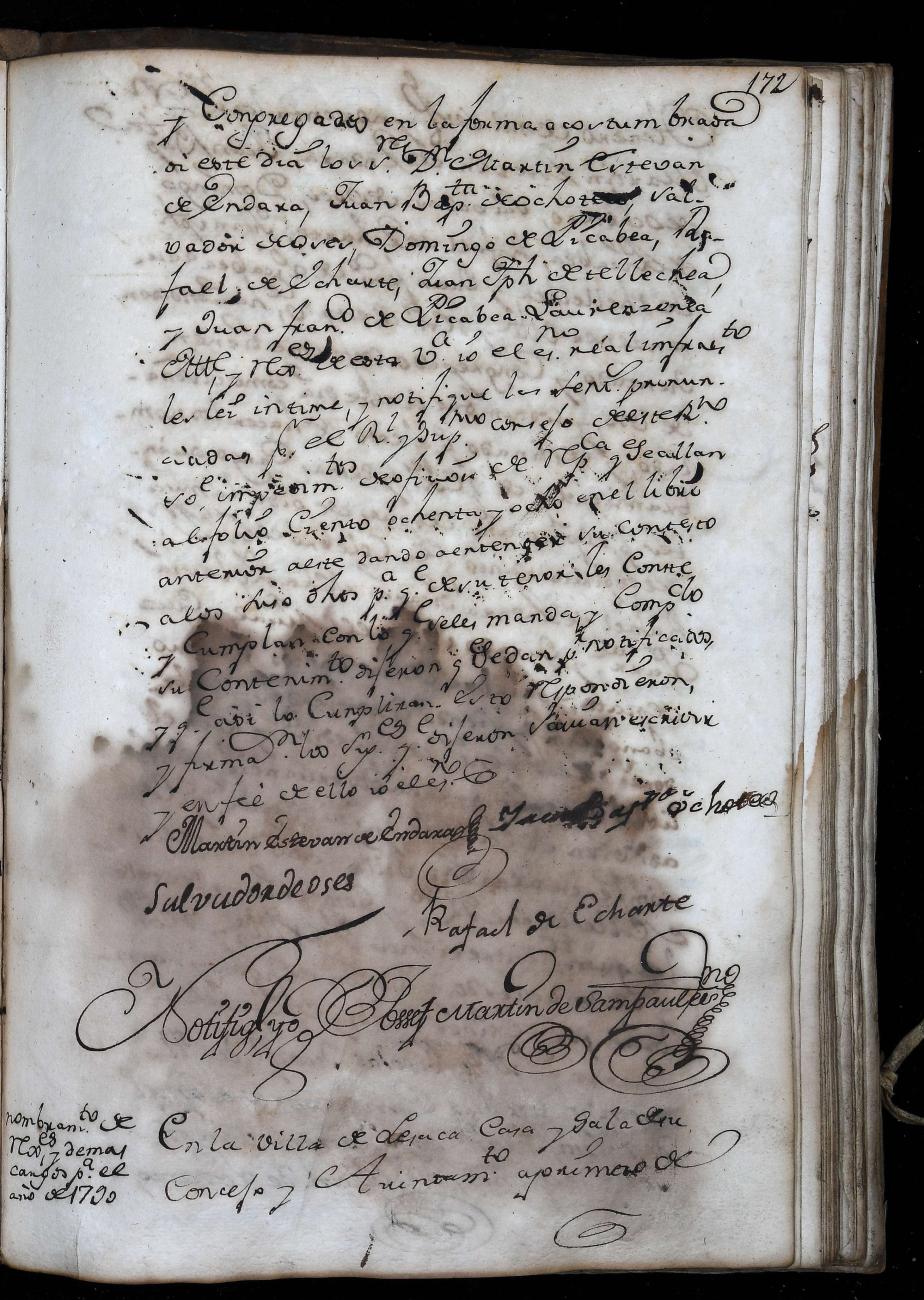 172
y Congregados en la forma acostumbrada
oi este dia los ss.res D.n Martin Estevan
de Endara, Juan Bap.ta de ochoteco, Sal-
vador de oses, Domingo de Picabea, Ra-
fael de Echarte, Juan Jph de tellechea,
y Juan fran.co de Picabea Laurenzenea
Alll.e y Rex.es de esta V.a io el es.no real infraes.to
les lei intime, y notifique las sent.s pronun-
ciadas p.r el R.l y Sup.mo consejo de este R.no
so.e impedim.tos de oficios de Rep.ca q se allan
al folio Ciento ochenta y ocho en el libro
anterior a este dando a entender su contesto
a los suso dhos p.a q.e de su tenor les Conste
y Cumplan con lo q.e se les manda, y Comp.do
su Contenim.to dijeron q.e se dan p.r notificados,
y q.e assi lo Cumpliran. Esto respondieron,
y firma.n los Sig.es q.e dijeron savian escrivir
y en fee de ello io el es.no
Martin Estevan de Endara Juan Bap.ta ochoteco
Salvador de oses
Rafael de Echarte
Notifiq.lo yo Jossef Martin de Sampaul es.no
nombram.to de
Rex.es y demas
cargos p.a el
año de 1790
En la villa de Lesaca Casa y Sala de su
Concejo y Aiuntam.to a primero de